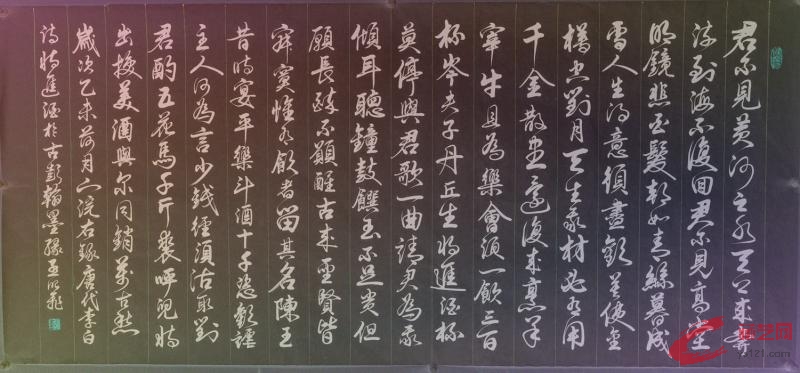 君不見黃河之水天上來奔
流到海不復回君不見高堂
明鏡悲白髮朝如青絲暮成
雪人生得意須盡歡莫使金
樽空對月天生我材必有用
千金散盡還復來烹羊
宰牛且為樂會須一飲三百
杯岑夫子丹丘生將進酒杯
莫停與君歌一曲請君為我
傾耳聽鐘鼓饌玉不足貴但
願長醉不願醒古來聖賢皆
寂寞惟有飲者留其名陳王
昔時宴平樂斗酒十千恣歡謔
主人何為言少錢徑須沽取對
君酌五花馬千斤裘呼兒將
出換美酒與爾同銷萬古愁
歲次乙未荷月浣右錄唐代李白
詩將進酒於古彭翰墨緣王
艺网